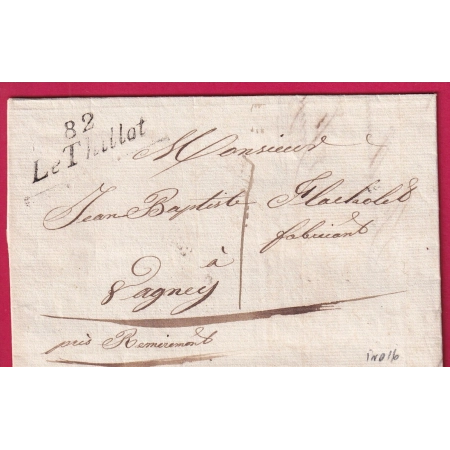 82
Le Thillot
Monsieur
Jean Baptiste Flacholet
fabricant
à
Vagney
près Remiremont
ind 16